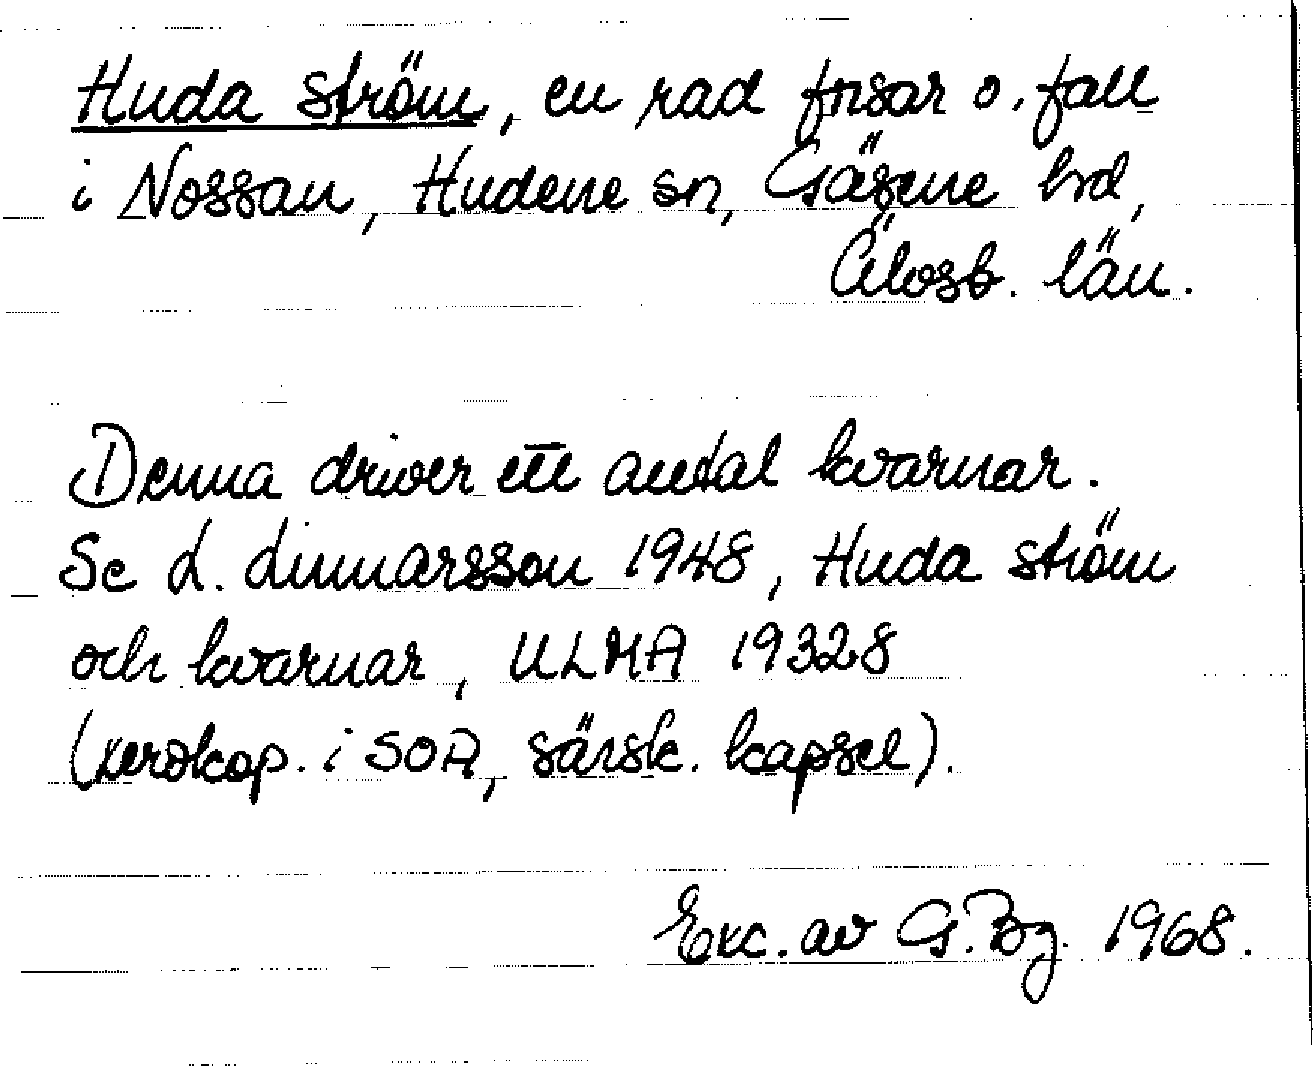 Huda ström, en rad forsar o. fall
i Nossan, Hudene sn, Gäsene hd,
Älvsb. län.
Denna driver ett antal kvarnar.
Se L. Linnarsson 1948, Huda ström
och kvarnar, ULMA 19328
(xerokop. i SOA, särsk. kapsel).
Exc. av G. Bg. 1968.